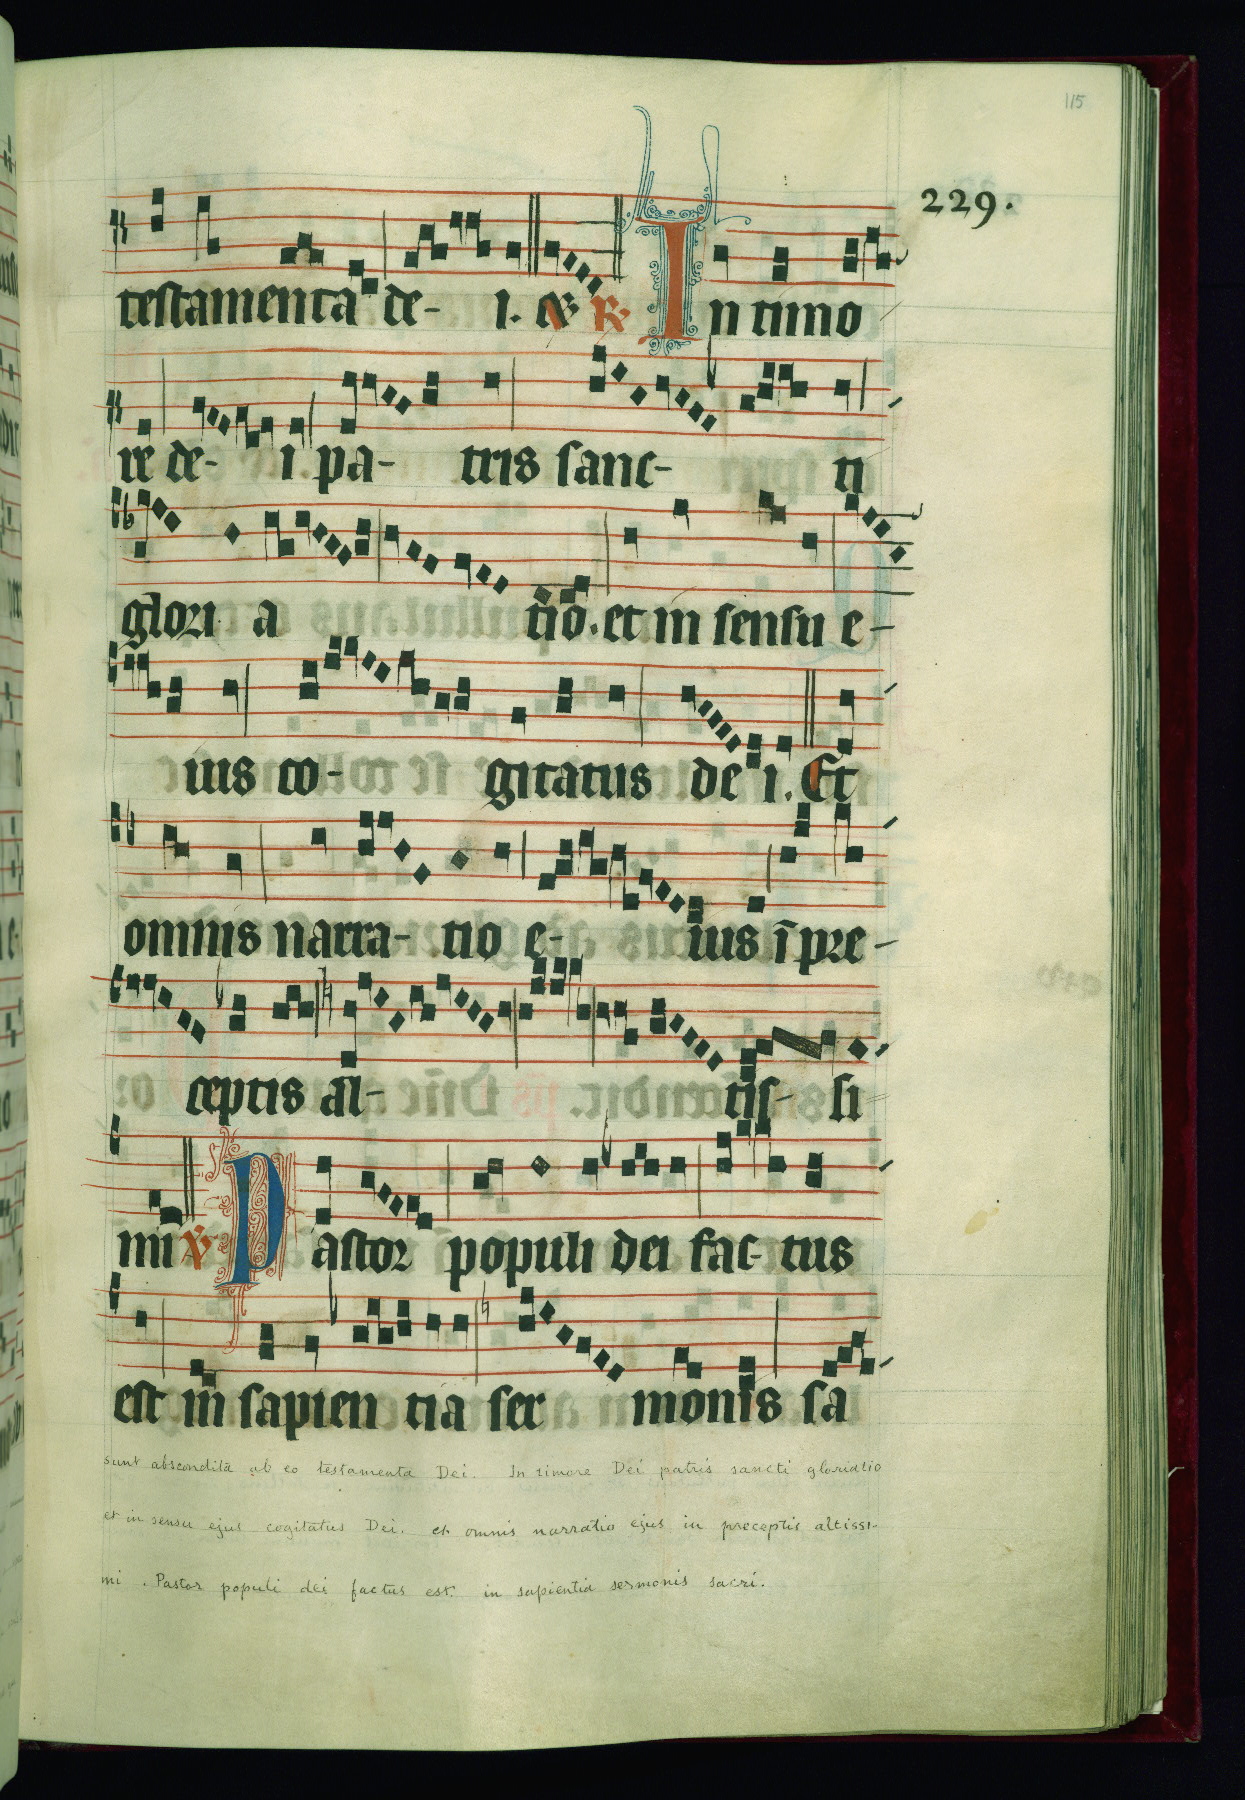 115
229.
testamenta de- i. ℣ ℟ In timo
re de- i pa- tris sanc- ti
glori a tio. et in sensu e-
ius co- gitatus de i. Et
omnis narra- tio e- ius ī pre-
ceptis al- tis- si
mi ℣ Pastor populi dei fac- tus
est in sapien tia ser monis sa
sunt abscondita ab eo testamenta Dei. In timore Dei patris sancti gloriatio
et in sensu ejus cogitatus Dei. et omnis narratio ejus in preceptis altissi-
mi . Pastor populi dei factus est in sapientia sermonis sacri.